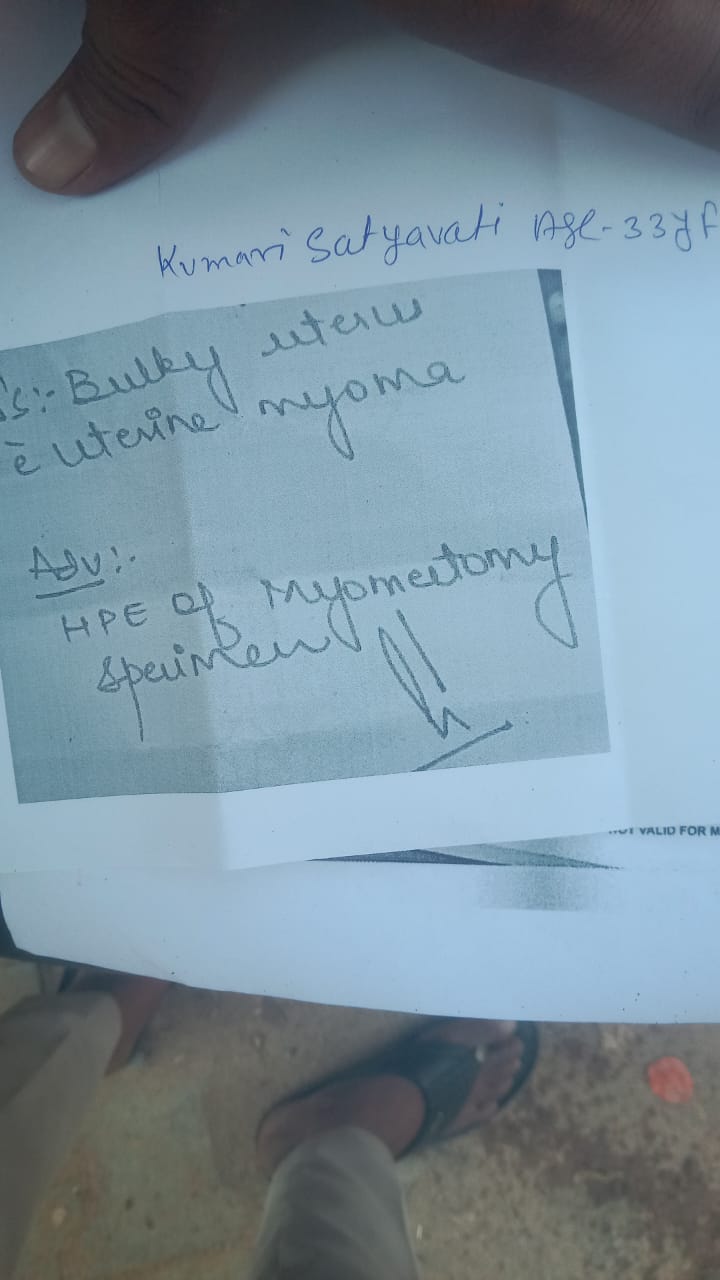 Kumari Satyavati Age-33yf
is:- Bulky uterus
c̄ uterine myoma
Adv:-
HPE of Myomectomy
specimen
VALID FOR M